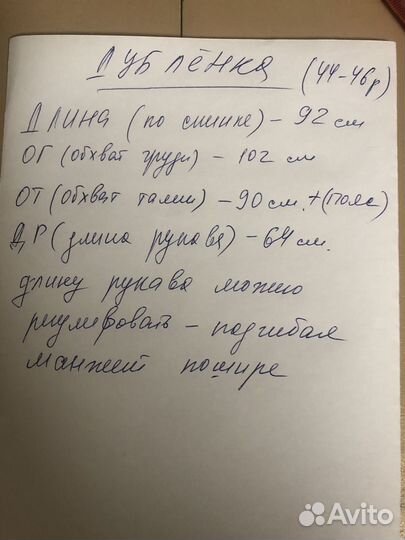 ДУБЛЁНКА (44-46р)
ДЛИНА (по спинке) - 92 см
ОГ (обхват груди) - 102 см
ОТ (обхват талии) - 90 см. + (пояс)
ДР (длина рукава) - 64 см.
длину рукава можно
регулировать - подгибая
манжет пошире
Avito